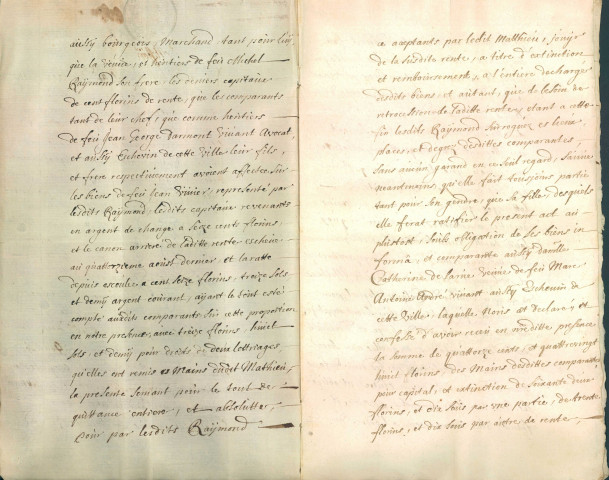 aussÿ bourgeois, Marchand tant pour luÿ
que la veuve, et héritiers de feu Michel
Raÿmond son frere, les deniers capitaux
de cent florins de rente, que les comparants
tant de leur chef, que comme heritiers
de feu Jean George Darmont vivant Avocat,
et aussÿ Eschevin de cette ville leur fils,
et frere respectivement avoient affectée sur
les biens de feu Jean vivier, représenté par
lesdits Raÿmond, lesdits capitaux revenants
en argent de change a seize cents florins,
et le canon arrieré de laditte rente escheue
au quatorzieme aoust dernier et la ratte
depuis escoulée a cent seize florins, treize sols
et demÿ argent courant, aÿant le tout esté
compté auxdits comparants sur cette proportion
en notre presence, avec treize florins, huict
sols, et demÿ pour droits de deux lettriages
qu'elles ont remis es mains dudit Mathieu,
la presente servant pour le tout de
quittance entiere, et absolutte,
pour par lesdits Raÿmond
ce acceptants par ledit Matthieu, jouÿr
de la susditte rente, a titre d'extinction
et remboursement, a l'entiere decharge
desdits biens et autant, que de besoin de
retrocession de laditte rente, estant a cette
fin lesdits Raÿmond subrogués es lieux,
places, et degrez desdittes comparantes,
sans aucun garand en ce seul regard,
neantmoins, qu'elle fait tousjours partie
tant pour son gendre, que sa fille desquels
elle ferat ratifier le present act au
plustost, soub obligation de ses biens in
forma, et comparante aussÿ damlle
Catherine de veuve de feu Marc
Antoine André vivant aussÿ Echevin de
cette ville laquelle Nous at declaré et
confessé d'avoir receu en nostre presence
la somme de quatorze cents, et quattrevingt
huit florins des mains desdittes comparantes
pour capital, et extinction de soixante deux
florins, et dix sous par une partie, de trente
florins, et dix sous par autre de rente,